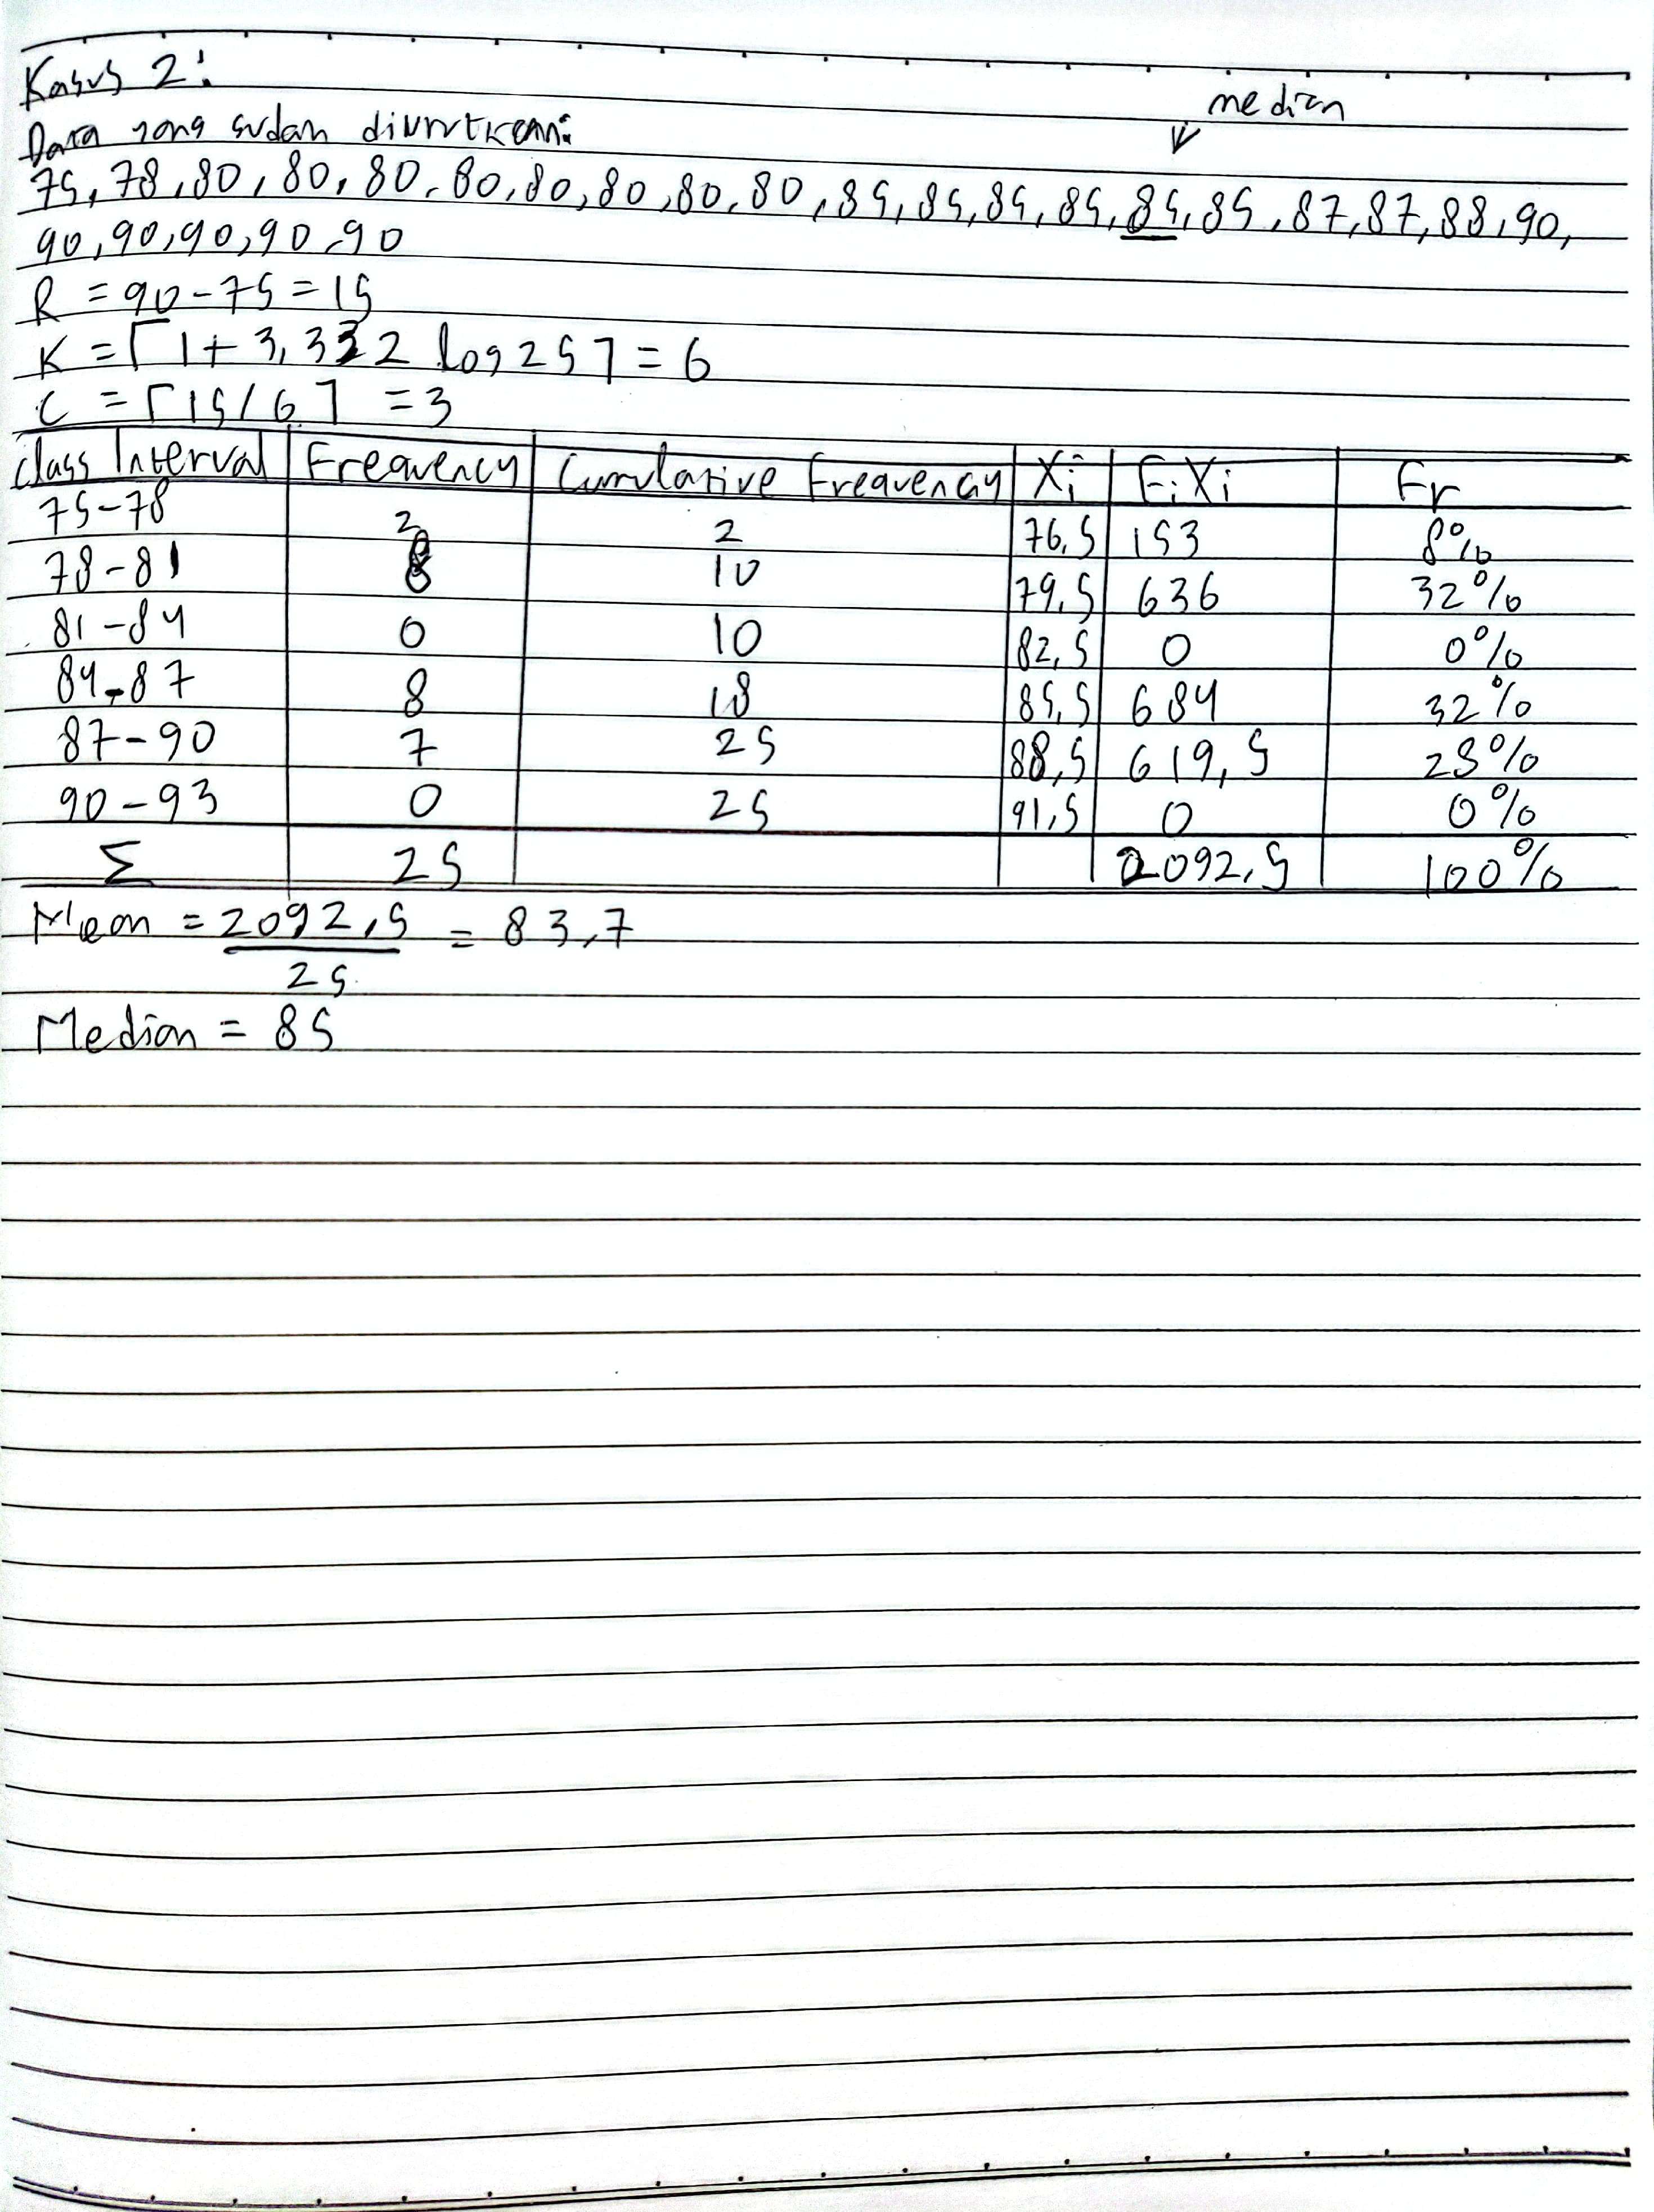 Kasus 2:
median
Data yang sudah diurutkan:
75, 78, 80, 80, 80, 80, 80, 80, 80, 80, 85, 85, 85, 85, 85, 85, 87, 87, 88, 90,
90, 90, 90, 90, 90
R = 90 - 75 = 15
K = ⌈1 + 3,322 log 25⌉ = 6
C = ⌈15/6⌉ = 3
Class Interval Frequency Cumulative Frequency Xi Fi Xi Fr
75-78 2 2 76,5 153 8%
78-81 8 10 79,5 636 32%
81-84 0 10 82,5 0 0%
84-87 8 18 85,5 684 32%
87-90 7 25 88,5 619,5 28%
90-93 0 25 91,5 0 0%
Σ 25 2092,5 100%
Mean = 2092,5 = 83,7
25
Median = 85